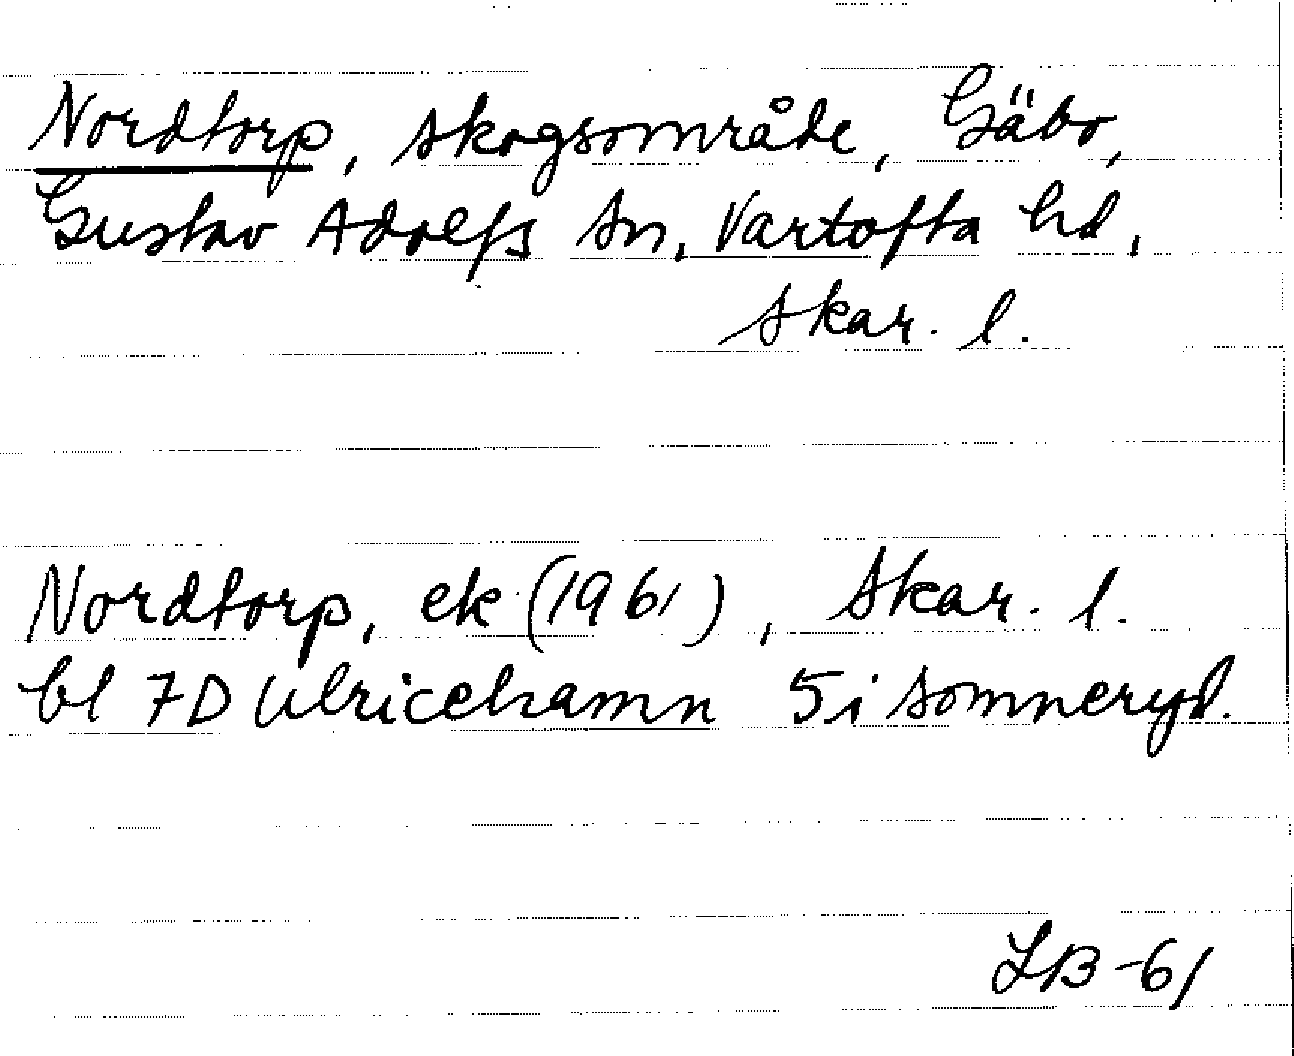 Nordtorp, skogsområde, Gäbo,
Gustav Adolfs sn, Vartofta hd,
Skar. l.
Nordtorp, ek (1961), Skar. l.
bl 7D Ulricehamn 5i Sömneryd.
LB -61